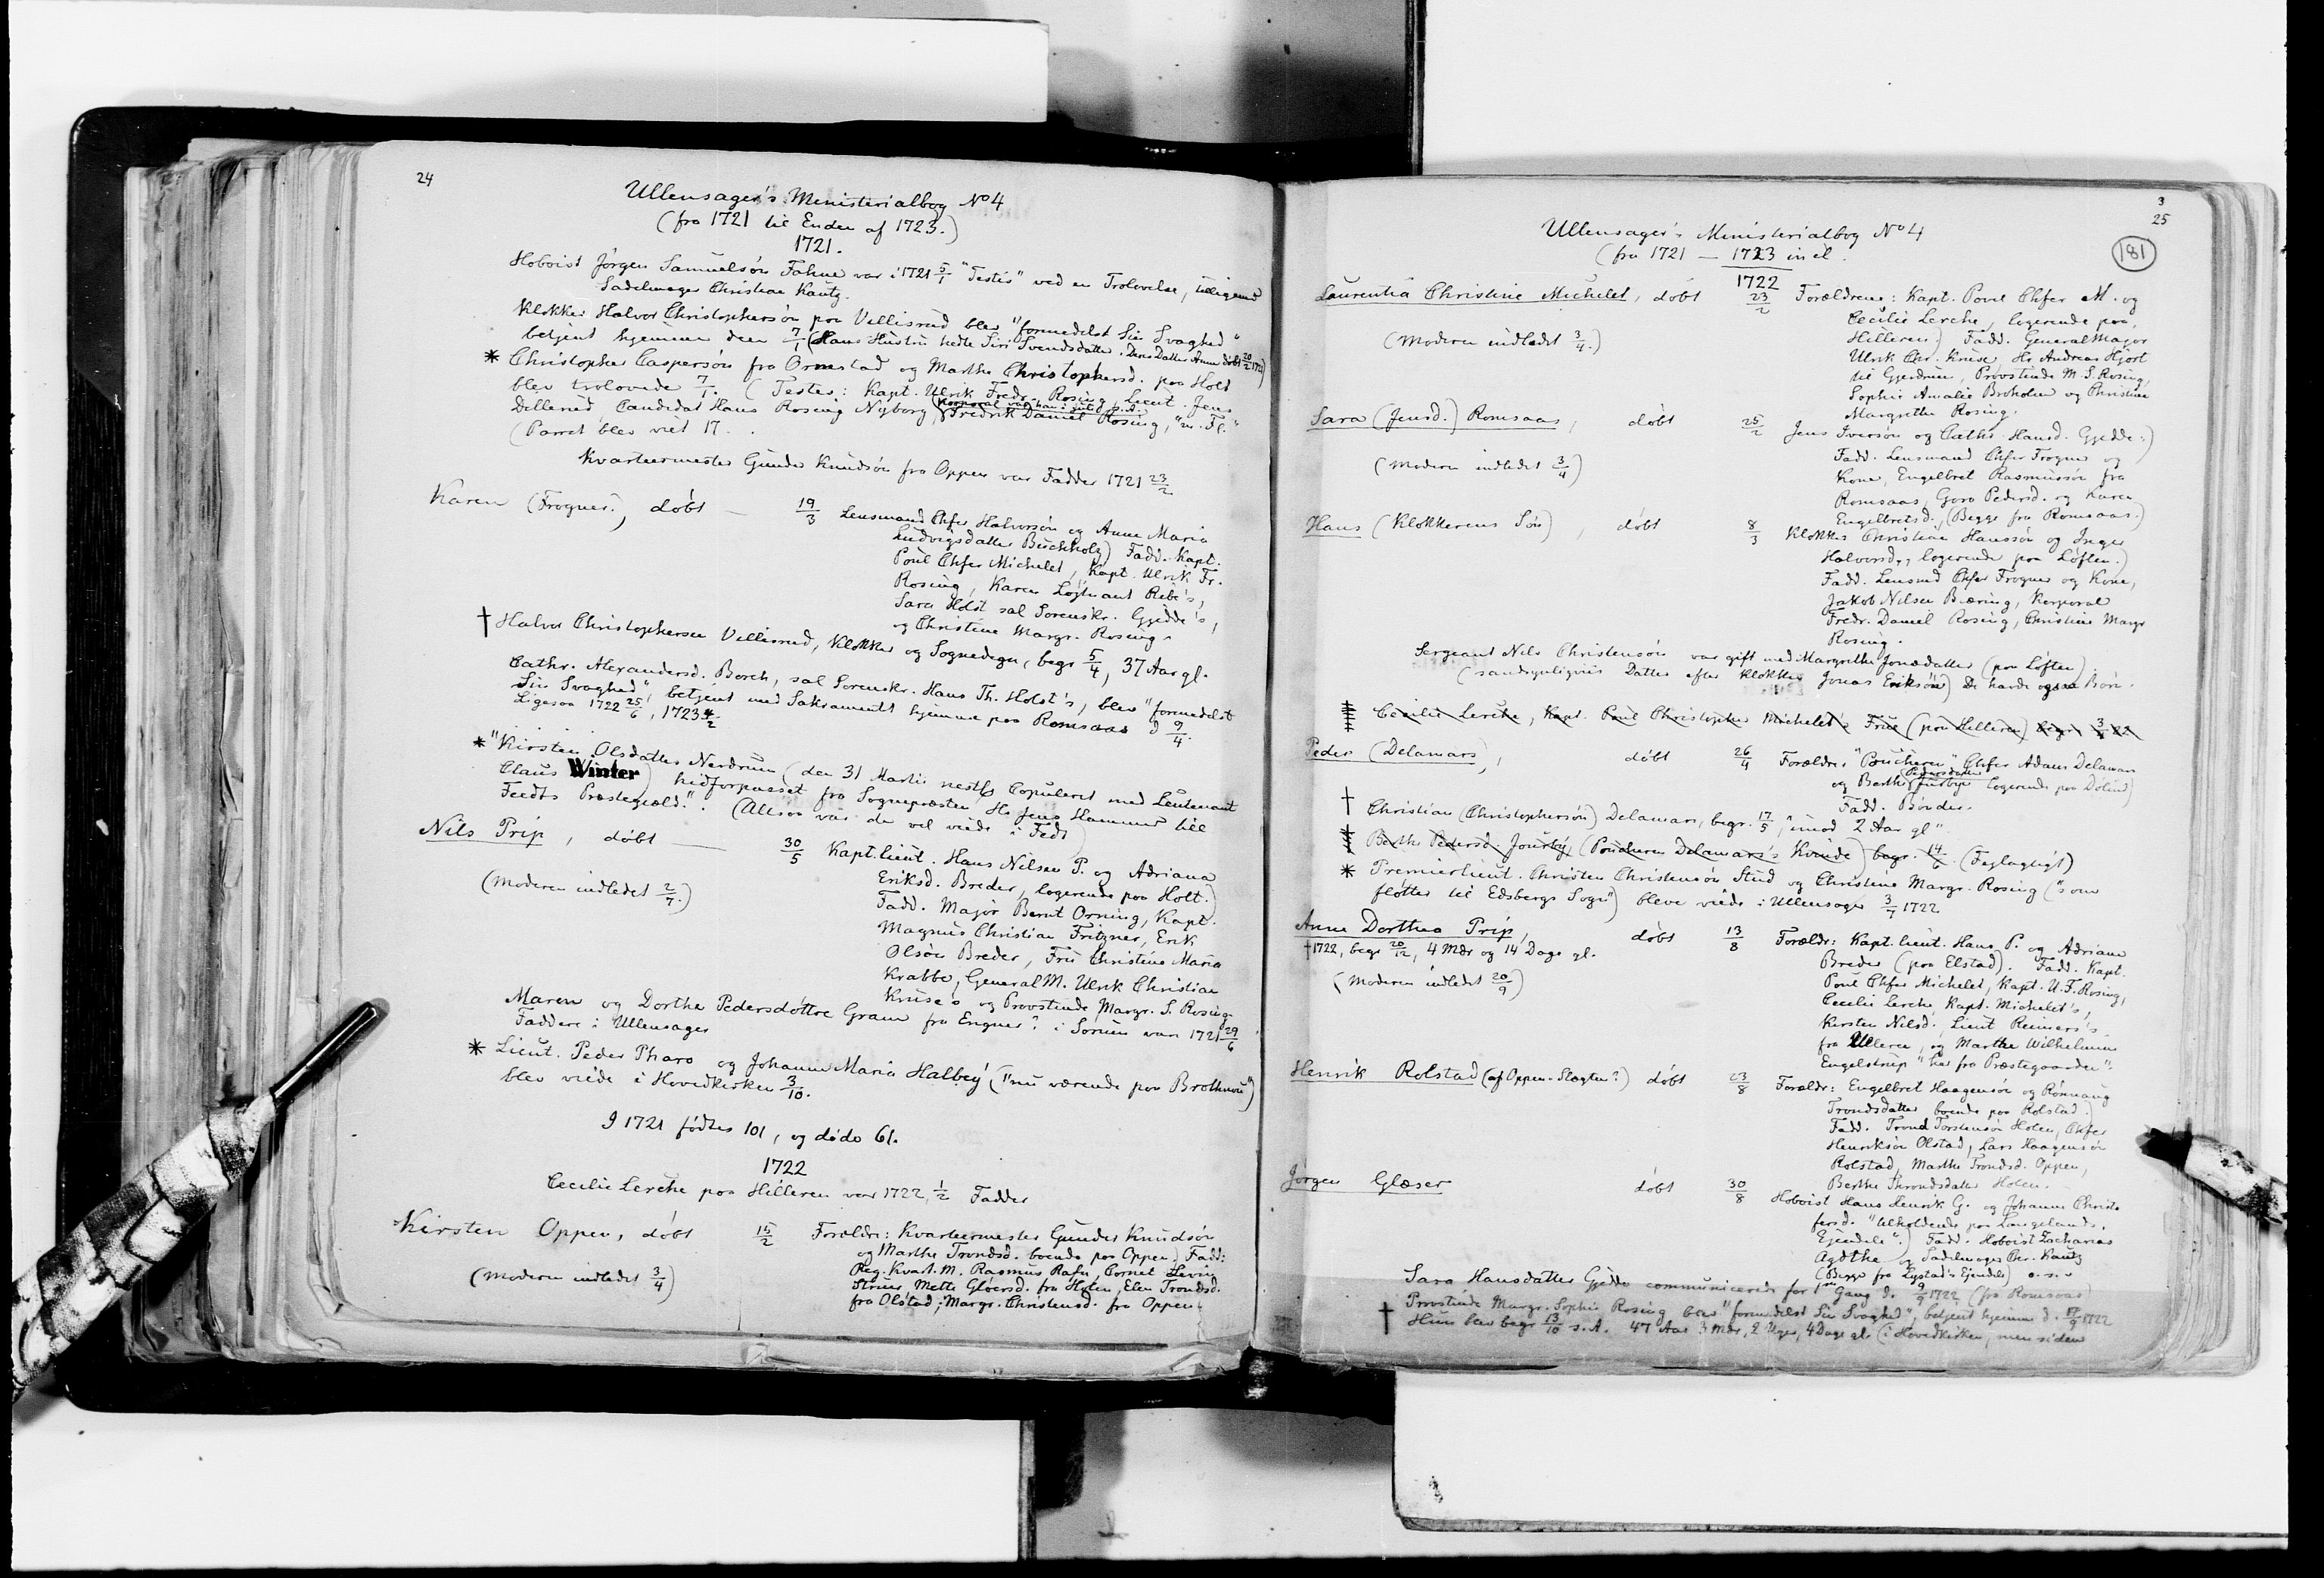 24
Ullensager's Ministerialbog No 4
(fra 1721 til Enden af 1723.)
1721.
Hoboist Jörgen Samuelsön Fahne var i 1721 5/1 "Testis" ved en Trolovelse, tilligemed
Sadelmager Christian Kautz.
Klokker Halvor Christophersön paa Villisrud blev "formedelst Sin Svaghed"
betjent hjemme den 7/1 (Hans Hustru hedte Siri Svendsdatter. Deres Datter Anna döbt 20/2 1721)
* Christopher Caspersön fra Ormstad og Marthe Christophersd. paa Hold
blev trolovede 7/1. (Testes: Kapt. Ulrik Fredr. Rosing, Lieut. Jens
Dillerud, Candidat Hans Rosing Nyborg, (Korporal var han i Juli s. A.) Fredrik Daniel Rosing, "m. Fl."
(Parret blev viet 17 .
Kvarteermester Gunder Knudsön fra Oppen var Fadder 1721 23/2
Karen (Frogner.), döbt — 19/3 Lensmand Chfer Halvorsön og Anne Maria
Ludvigsdatter Buchholz) Fadd. Kapt.
Poul Chfer Michelet, Kapt. Ulrik Fr.
Rosing, Karen Löjtnant Rebe's,
Sara Holst sal Sorenskr. Gjedde's,
og Christine Margr. Rosing.
† Halvor Christophersen Villisrud, Klokker og Sognedegn, begr 5/4, 37 Aar gl.
Cathr. Alexandersd. Borch, sal Sorenskr. Hans Th. Holst's, blev "formedelst
Sin Svaghed", betjent med Sakrament hjemme paa Romsaas d 9/4.
Ligesaa 1722 25/6, 1723 4/2
* "Kirsten Olsdatter Nerdrum (den 31 Martii nestl. Copuleret med Leutenant
Claus Winter) hidforpasset fra Sognepræsten Hr Jens Hammer till
Feedts Præstegield." (Altsaa var de vel viede i Fedt)
Nils Prip, döbt — 30/5 Kapt.lieut. Hans Nilsen P. og Adriana
Eriksd. Breder, logerende paa Holt.)
(Moderen indledet 2/7.)
Fadd. Major Bernt Orning, Kapt.
Magnus Christian Fritzner, Erik
Olsön Breder, Fru Christine Maria
Krabbe, General M. Ulrik Christian
Kruse's og Provstinde Margr. S. Rosing.
Maren og Dorthe Pedersdöttre Gram fra Engner? i Sorum var 1721 29/6
Faddere i Ullensager
* Lieut. Peder Pharo og Johanne Maria Halbey ("nu værende paa Brothnou")
blev viede i Hovedkirken 3/10.
I 1721 födtes 101, og döde 61.
1722
Cecilie Lerche paa Hilleren var 1722, 1/2 Fadder
Kirsten Oppen, döbt 15/2 Forældre: Kvarteermester Gunder Knudsön
og Marthe Trondsd. boende paa Oppen) Fadd:
(Moderen indledet 3/4)
Reg. Kvart. M. Rasmus Rafn, Cornet Levin
Strüus, Mette Glöersd. fra Holen, Elen Trondsd.
fra Olstad, Margr. Christensd. fra Oppen.
3
25
181
Ullensager's Ministerialbog No 4
(fra 1721 — 1723 incl.
1722
Laurentia Christine Michelet, döbt 23/2 Forældrene: Kapt. Povel Chfer M. og
Cecilie Lerche, logerende paa,
(Moderen indledet 3/4.)
Hilleren) Fadd. GeneralMajor
Ulrik Chr. Kruse, Hr. Andreas Hjort
til Gjerdrum, Provstinde M. S. Rosing,
Sophie Amalie Broholm og Christine
Margrethe Rosing.
Sara (Jensd.) Romsaas, döbt 25/2 Jens Iversön og Cathr. Hansd. Gjedde:)
Fadd. Lensmand Chfer Frogner og
(Moderen indledet 3/4)
Kone, Engelbret Rasmussön fra
Romsaas, Goro Pedersd. og Karen
Engelbretsd., (Begge fra Romsaas.)
Hans (Klokkerens Sön), döbt 8/3 Klokker Christian Hanssön og Inger
Halvorsd., logerende paa Löften.)
Fadd. Lensmd Chfer Frogner og Kone,
Jakob Nilsen Bæring, Korporal
Fredr. Daniel Rosing, Christine Margr
Rosing.
Sergeant Nils Christensön var gift med Margrethe Jonædatter (paa Löften).
(sandsynligviis Datter efter Klokker Jonas Eriksön) De havde ogsaa Börn.
Cecilie Lerche, Kapt. Poul Christopher Michelet's Frue (paa Hilleren) begr. 3/
Peder (Delamars), döbt 26/4 Forældre: "Poucheur" Chfer Adam Delamars
og Berthe Pedersdatter Jusbye logerende paa Dölind)
Fadd. Bönder.
† Christian (Christophersön) Delamars, begr. 17/5, "imod 2 Aar gl".
Berthe Pedersd. Jousby, (Poucheuren Delamars's Kvinde) begr. 14/6. (Feglagtigt)
* Premierlieut. Christen Christensön Stud og Christine Margr. Rosing ("som
flötter til Edsbergs Sogn") bleve viede i Ullensager 3/7 1722
Anne Dorthea Prip, döbt 13/8 Forældr: Kapt. lieut. Hans P. og Adriane
† 1722, begr 20/12, 4 Mdr og 14 Dage gl.
Breder (paa Elstad). Fadd. Kapt.
(Moderen indledet 20/9)
Poul Chfer Michelet, Kapt. U. F. Rosing,
Cecilie Lerche, Kapt. Michelet's,
Kirsten Nilsd. Lieut Reimers's
fra Ulleren, og Marthe Wilhelmine
Engelstrup "her fra Præstegaarden".
Henrik Rolstad (af Oppen-Slægten?) döbt 23/8 Forældr: Engelbret Haagensön og Rönnaug
Trondsdatter boende paa Rolstad.)
Fadd. Trond Torstensön Holen, Chfer
Henriksön Olstad, Lars Haagensön
Rolstad, Marthe Trondsd. Oppen,
Berthe Throndsdatter Holen.
Jörgen Glæser döbt 30/8 Hoboist Hans Henrik G. og Johanne Christo
fersd. "tilholdende paa Langelands.
Ejendele".) Fadd. Hoboist Zacharias
Agdthe og Sadelmager Chr. Kautz
(Begge fra Lystad's Ejendele) o. s. v
Sara Hansdatter Gjedde communicerede for 1ste Gang d. 9/9 1722 (fra Romsaas)
† Provstinde Margr. Sophie Rosing blev "formedelst Sin Svaghed", betjent hjemme d. /9 1722
Hun blev begr 13/10 s. A. 47 Aar 3 Mdr, 2 Uger, 4 Dage gl. (i Hovedkirken, men siden